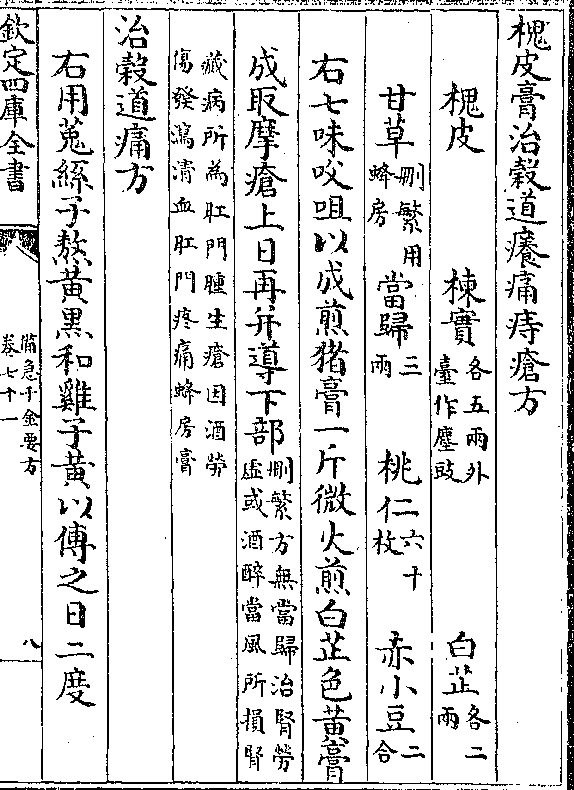 槐皮膏治穀道癢痛痔瘡方
槐皮 楝實各五兩外臺作塵豉 白芷各二兩
甘草刪繁用蜂房 當歸三兩 桃仁六十枚 赤小豆二合
右七味㕮咀以成煎猪膏一斤微火煎白芷色黄膏
成取摩瘡上日再并導下部刪繁方無當歸治腎勞虚或酒醉當風所損腎
藏病所為肛門腫生瘡因酒勞傷發瀉清血肛門疼痛蜂房膏
治穀道痛方
右用菟絲子熬黄黑和雞子黄以傅之日二度
欽定四庫全書
備急千金要方
卷七十一
八